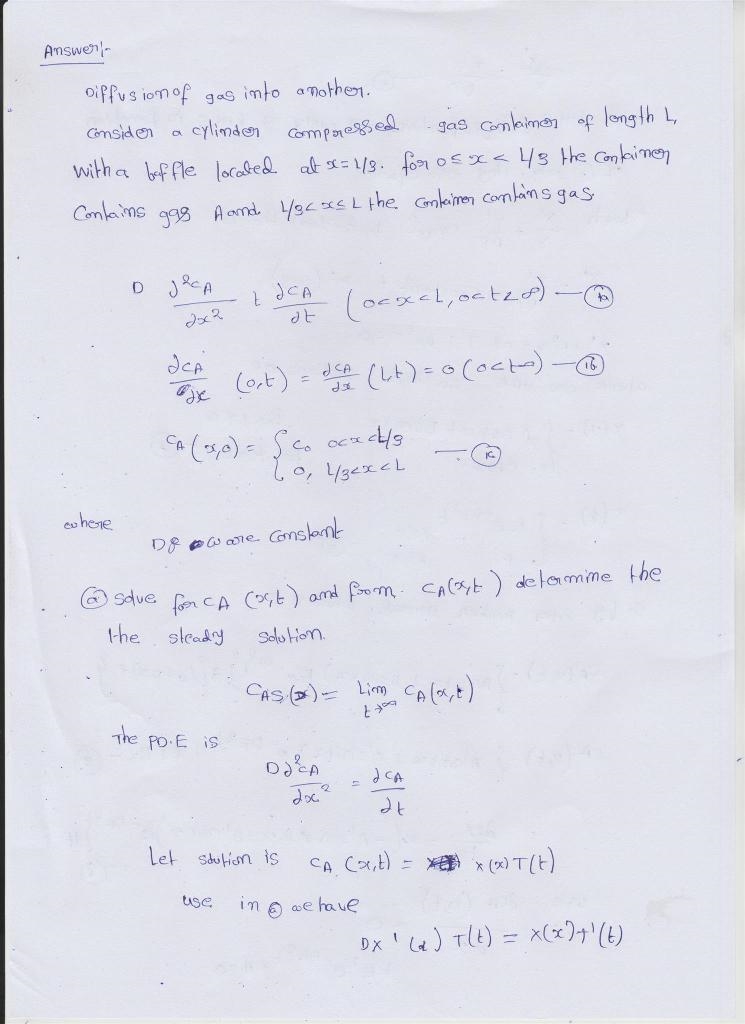 Answer:-
Diffusion of gas into another.
consider a cylinder compressed gas container of length L,
with a baffle located at x=L/3. for 0≤x< L/3 the container
Contains gas A and L/3<x≤L the container contains gas.
D ∂²CA/∂x² = ∂CA/∂t (0<x<L, 0<t<∞) — (1a)
∂CA/∂x (0,t) = ∂CA/∂x (L,t) = 0 (0<t<∞) — (1b)
CA(x,0) = { C0 0<x<L/3
0, L/3<x<L — (1c)
where
D & are constant
(a) solve for CA (x,t) and from CA(x,t) determine the
the steady solution.
CAS(x) = Lim t→∞ CA(x,t)
The PD.E is
D∂²CA/∂x² = ∂CA/∂t
Let solution is CA (x,t) = X(x)T(t)
use in (a) we have
DX'(x) T(t) = X(x)T'(t)